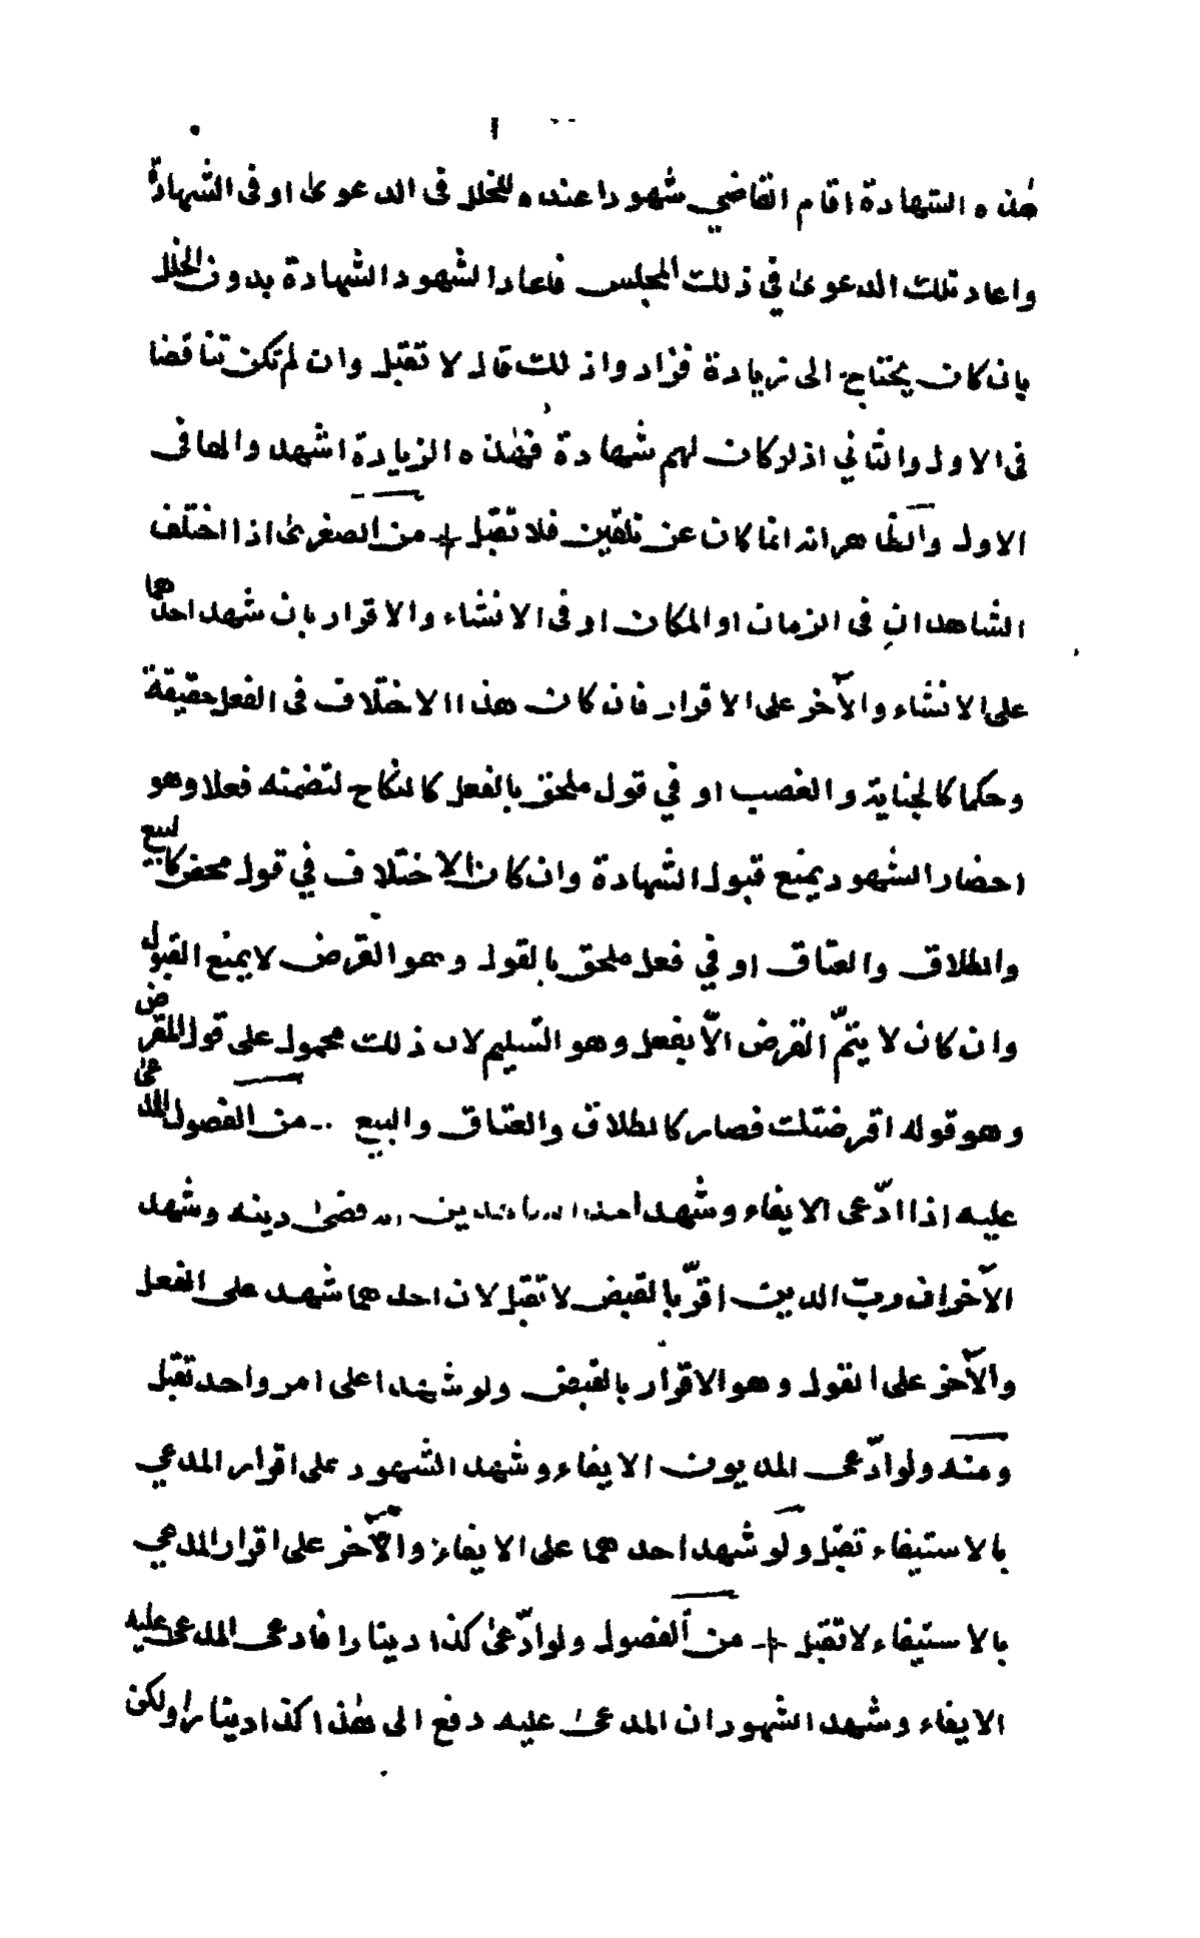 هٰذه الشهادة اقام القاضي شهودا عنده للخلل فى الدعوىٰ او فى الشهادة
واعاد تلك الدعوىٰ في ذلك المجلس فاعاد الشهود الشهادة بدون الخلل
بان كان يحتاج الى زيادة فزاد واذلك قال لا تقبل وان لم تكن تناقضا
فى الاول والثاني اذ لو كان لهم شهادة فهٰذه الزيادة اشهد والها فى
الاول والظاهر انه انما كان عن تلقين فلا تقبل + من الصغرىٰ اذا اختلف
الشاهدان فى الزمان او المكان او فى الانشاء والاقرار بان شهد احدهما
على الانشاء والآخر على الاقرار فان كان هذا الاختلاف فى الفعل حقيقة
وحكما كالجناية والغصب او في قول ملحق بالفعل كالنكاح لتضمنه فعلا وهو
احضار الشهود يمنع قبول الشهادة وان كان الاختلاف في قول محض كالبيع
والطلاق والعتاق او في فعل ملحق بالقول وهو القرض لا يمنع القبول
وان كان لا يتمّ القرض الّا بفعل وهو التسليم لان ذلك محمول على قول المقرض
وهو قوله اقرضتك فصار كالطلاق والعتاق والبيع .. من الفصول المدعىٰ
عليه اذا ادّعى الايفاء وشهد احد الشاهدين انه قضىٰ دينه وشهد
الآخر ان ربّ الدين اقرّ بالقبض لا تقبل لان احدهما شهد على الفعل
والآخر على القول وهو الاقرار بالقبض ولو شهدا على امر واحد تقبل
ومنه ولو ادّعى المديون الايفاء وشهد الشهود على اقرار المدعي
بالاستيفاء تقبل ولو شهد احدهما على الايفاء والآخر على اقرار المدعي
بالاستيفاء لا تقبل + من الفصول ولو ادّعىٰ كذا دينارا فادعى المدعى عليه
الايفاء وشهد الشهود ان المدعىٰ عليه دفع الى هٰذا كذا دينارا ولكن